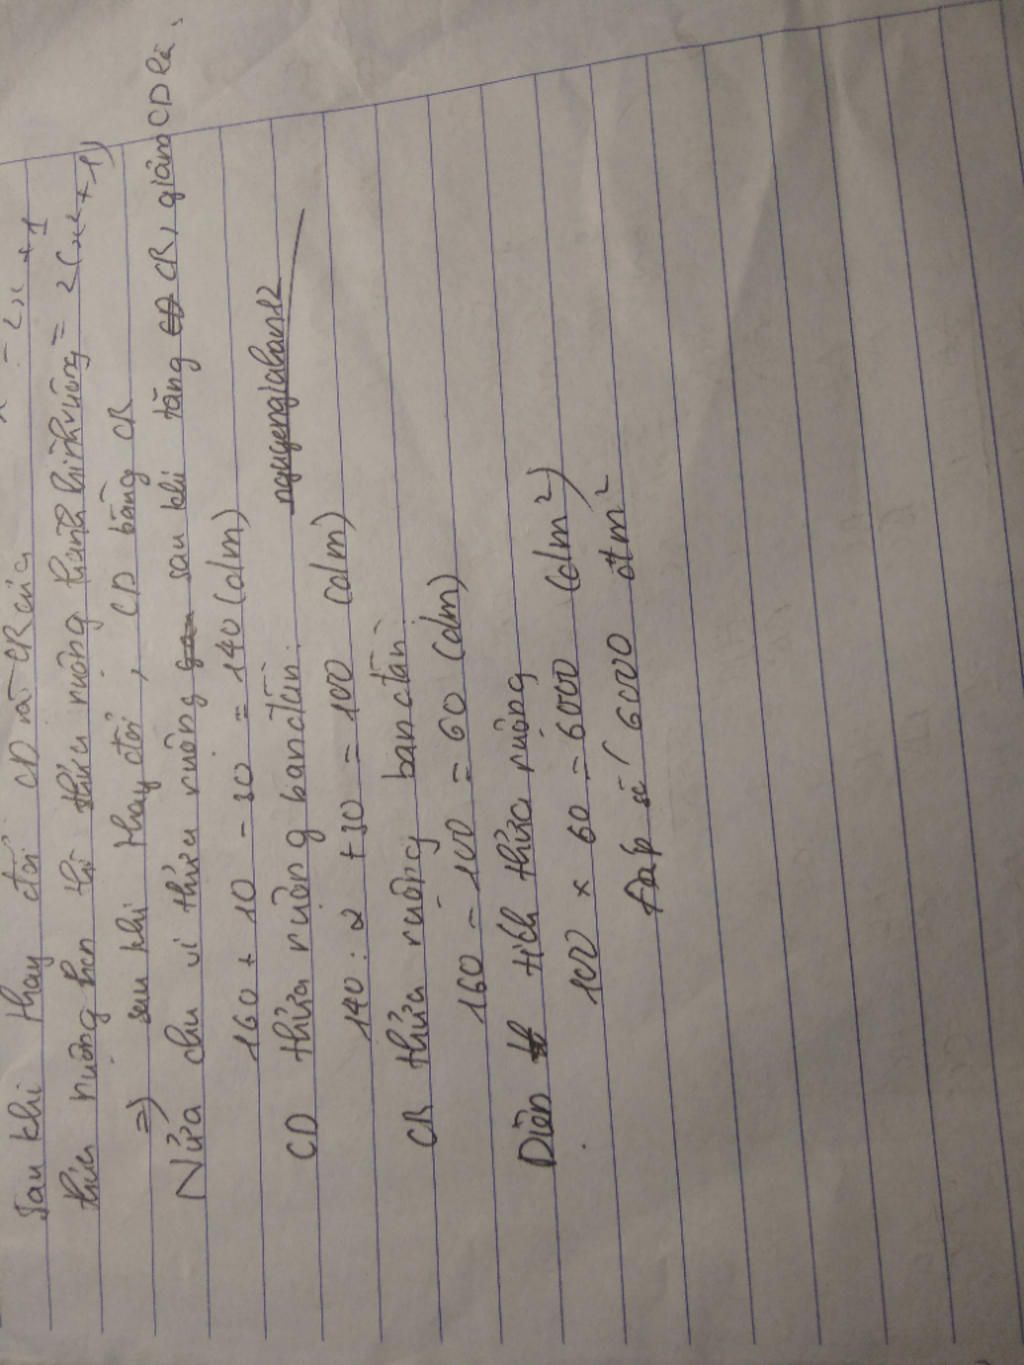 Sau khi thay đổi CD và CR của = 2x + 1
thửa ruộng trên thì thửa ruộng thành hình vuông = 2(x + 1)
=) sau khi thay đổi, CD bằng CR
Nửa chu vi thửa ruộng sau khi tăng CR, giảm CD là:
160 + 10 - 30 = 140 (dm)
CD thửa ruộng ban đầu: nguyengiahanh2
140 : 2 + 30 = 100 (dm)
CR thửa ruộng ban đầu
160 - 100 = 60 (dm)
Diện tích thửa ruộng
100 x 60 = 6000 (dm²)
Đáp số 6000 dm²